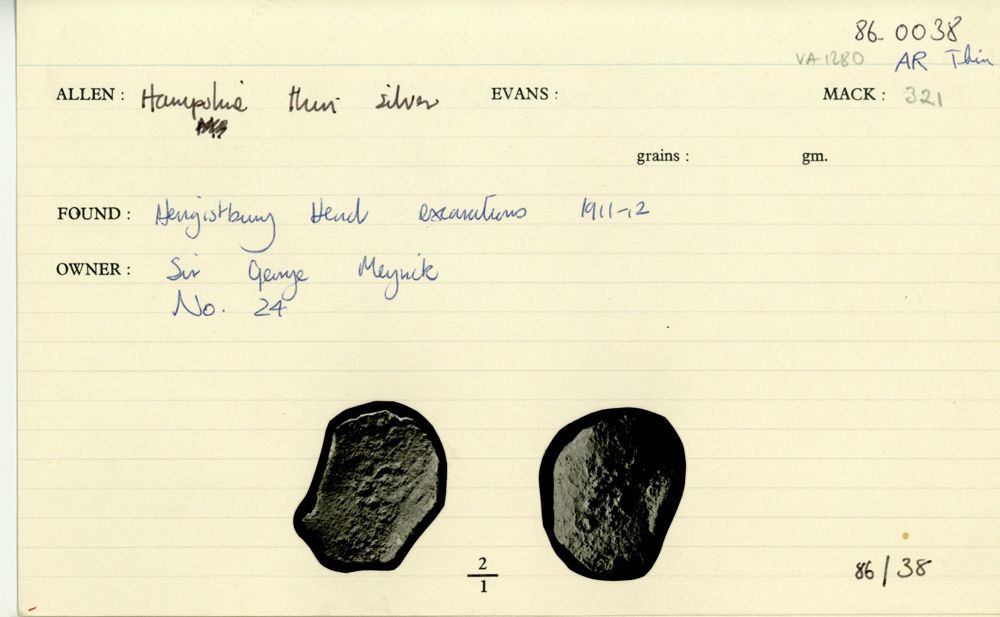 86_0038
VA 1280 AR Thin
ALLEN: Hampshire thin silver EVANS: MACK: 321
grains: gm.
FOUND: Hengistbury Head excavations 1911-12
OWNER: Sir George Meyrick
No. 24
2
1
86/38